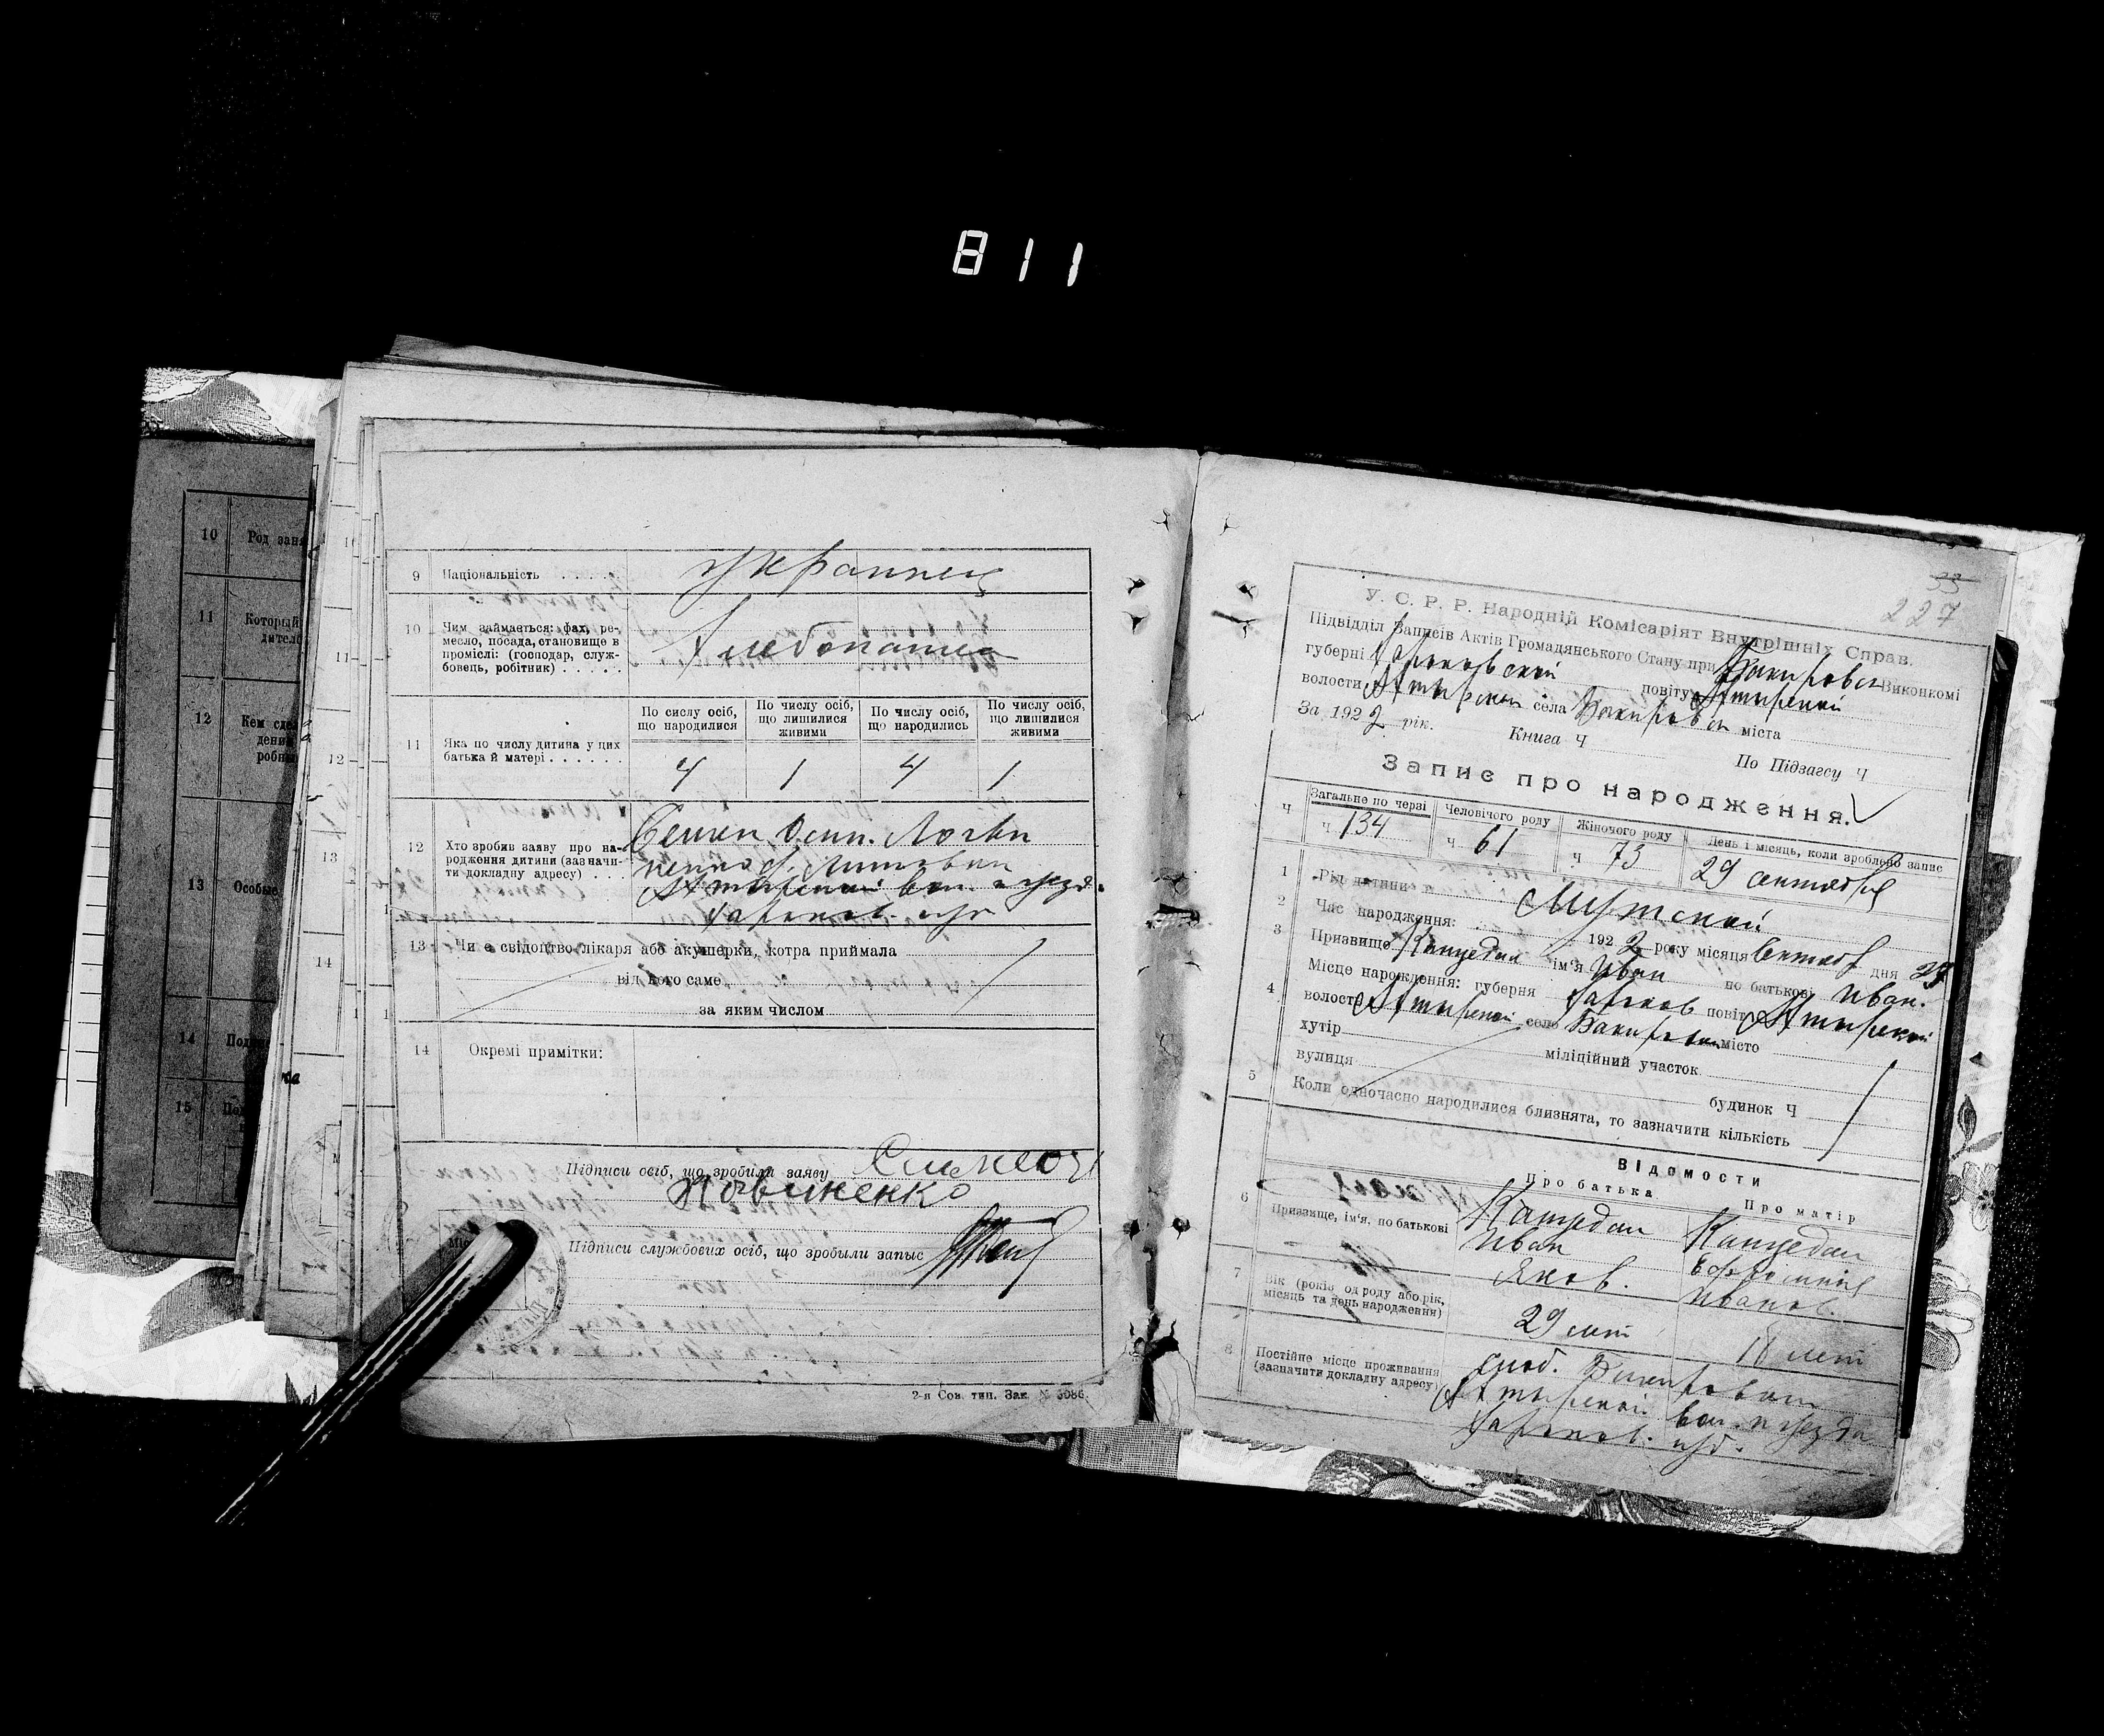 811
10 Род заня
11 Который
дител
12 Кем сде
дений
робны
13 Особые
14 Подп
15 Под
11
12
13
14
9 Національність . . . . . Украинец
10 Чим займається: фах, ре-
месло, посада, становище в
проміслі: (господар, служ-
бовець, робітник) . . . . . Хлебопашец
По сислу осіб, що народилися
По числу осіб, що лишилися живими
По числу осіб, що народились
По числу осіб, що лишилися живими
11 Яка по числу дитина у цих
батька й матері . . . . . .
4 1 4 1
12 Хто зробив заяву про на-
родження дитини (зазначи-
ти докладну адресу) . . .
Семен Осип. Логви
ненко
Ахтырской вол. и уезд.
Харьков. губ
13 Чи є свідоцтво лікаря або акушерки, котра приймала
від кого саме
за яким числом
14 Окремі примітки:
Підписи осіб, що зробили заяву
Підписи службових осіб, що зробили запыс
2-я Сов. тип. Зак. № 3086.
33
227
У. С. Р. Р. Народній Комісаріят Внутрішніх Справ.
Підвідділ Записів Актів Громадянського Стану при Бакировск Виконкомі
губерні Харьковской повіту Ахтырской
волости Ахтырской села Бакировки міста
За 1922 рік. Книга Ч По Підзагсу Ч
Запис про народження.
Ч Загальне по черзі Человічого роду Жіночого роду День і місяць, коли зроблено запис
ч 134 ч 61 ч 73 29 сентября
1 Рід дитини Мужской
2 Час народження: 1922 року місяця Сентяб дня
3 Призвище Кацедан ім'я Иван по батькові Иван.
4 Місце народження: губерня Харьков повіт Ахтырской
волость Ахтырской село Бакировки місто
хутір міліційний участок
вулиця будинок Ч
5 Коли одночасно народилися близнята, то зазначити кількість
Відомости
Про батька Про матір
6 Призвище, ім'я, по батькові
Кацедан Кацедан
Иван
Яков. Иванов.
7 Вік (років од роду або рік,
місяць та день народження)
29 лет 18 лет
8 Постійне місце проживання
(зазначити докладну адресу)
слоб. Бакировки
Ахтырской вол. и уезда
Харьков. губ.